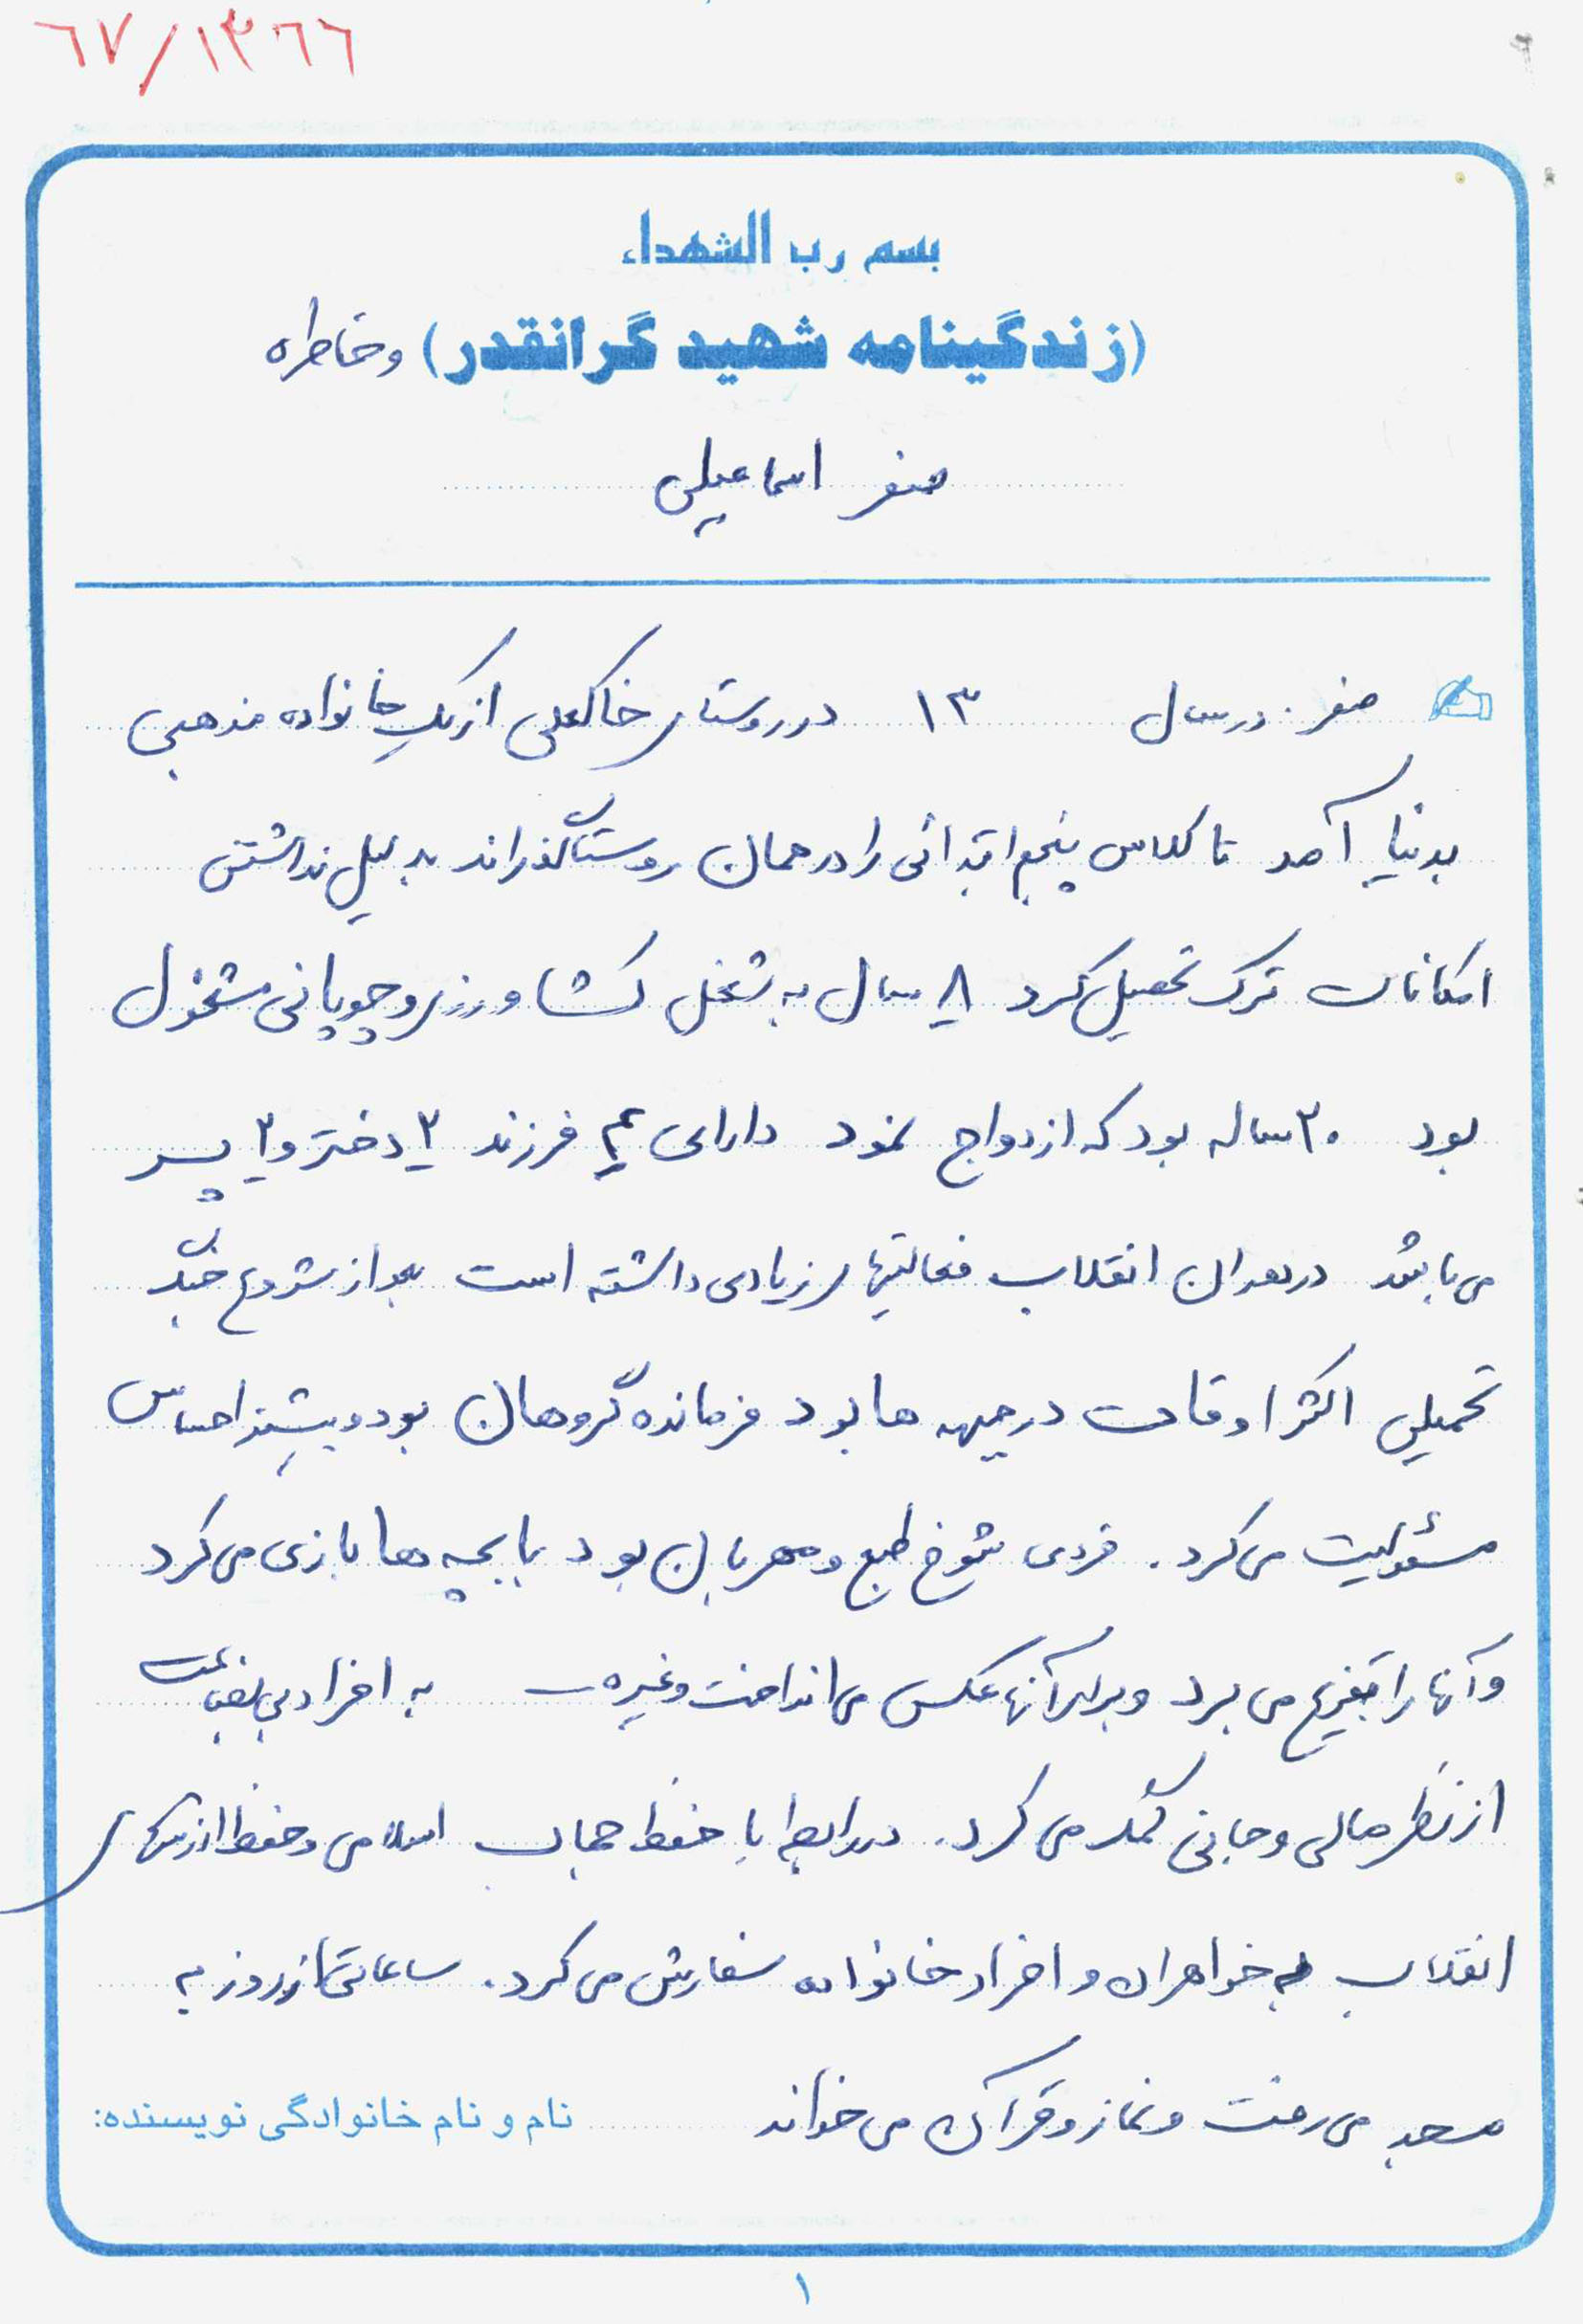 ٦٧/١٣٦٦
بسم رب الشهداء
(زندگینامه شهید گرانقدر) و خاطره
صفر اسماعیلی
صفر در سال ١٣ در روستای خاکعلی از یک خانواده مذهبی
بدنیا آمد تا کلاس پنجم ابتدائی را در همان روستا گذراند بدلیل نداشتن
امکانات ترک تحصیل کرد ٨ سال به شغل کشاورزی و چوپانی مشغول
بود ٢٠ ساله بود که ازدواج نمود دارای ٤ فرزند ٢ دختر و ٢ پسر
می باشد در دوران انقلاب فعالیتهای زیادی داشته است بعد از شروع جنگ
تحمیلی اکثر اوقات در جبهه ها بود فرمانده گروهان بود و بیشتر احساس
مسئولیت می کرد. فردی شوخ طبع و مهربان بود با بچه ها بازی می کرد
و آنها را بتفریح می برد و برای آنها عکس می انداخت و غیره به افراد بی بضاعت
از نظر مالی و جانی کمک می کرد. در رابطه با حفظ حجاب اسلامی و حفظ ارزشهای
انقلاب به خواهران و افراد خانواده سفارش می کرد. ساعاتی از روز به
مسجد می رفت و نماز و قرآن می خواند
نام و نام خانوادگی نویسنده:
١